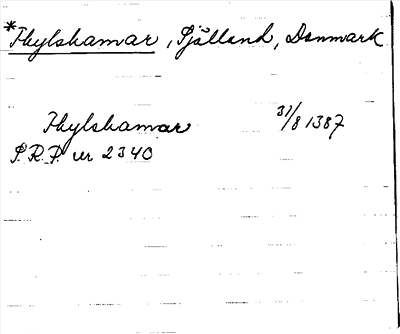 *Thylshamar, Själland, Danmark
Thylshamar 31/8 1387
S.R.P. nr 2340